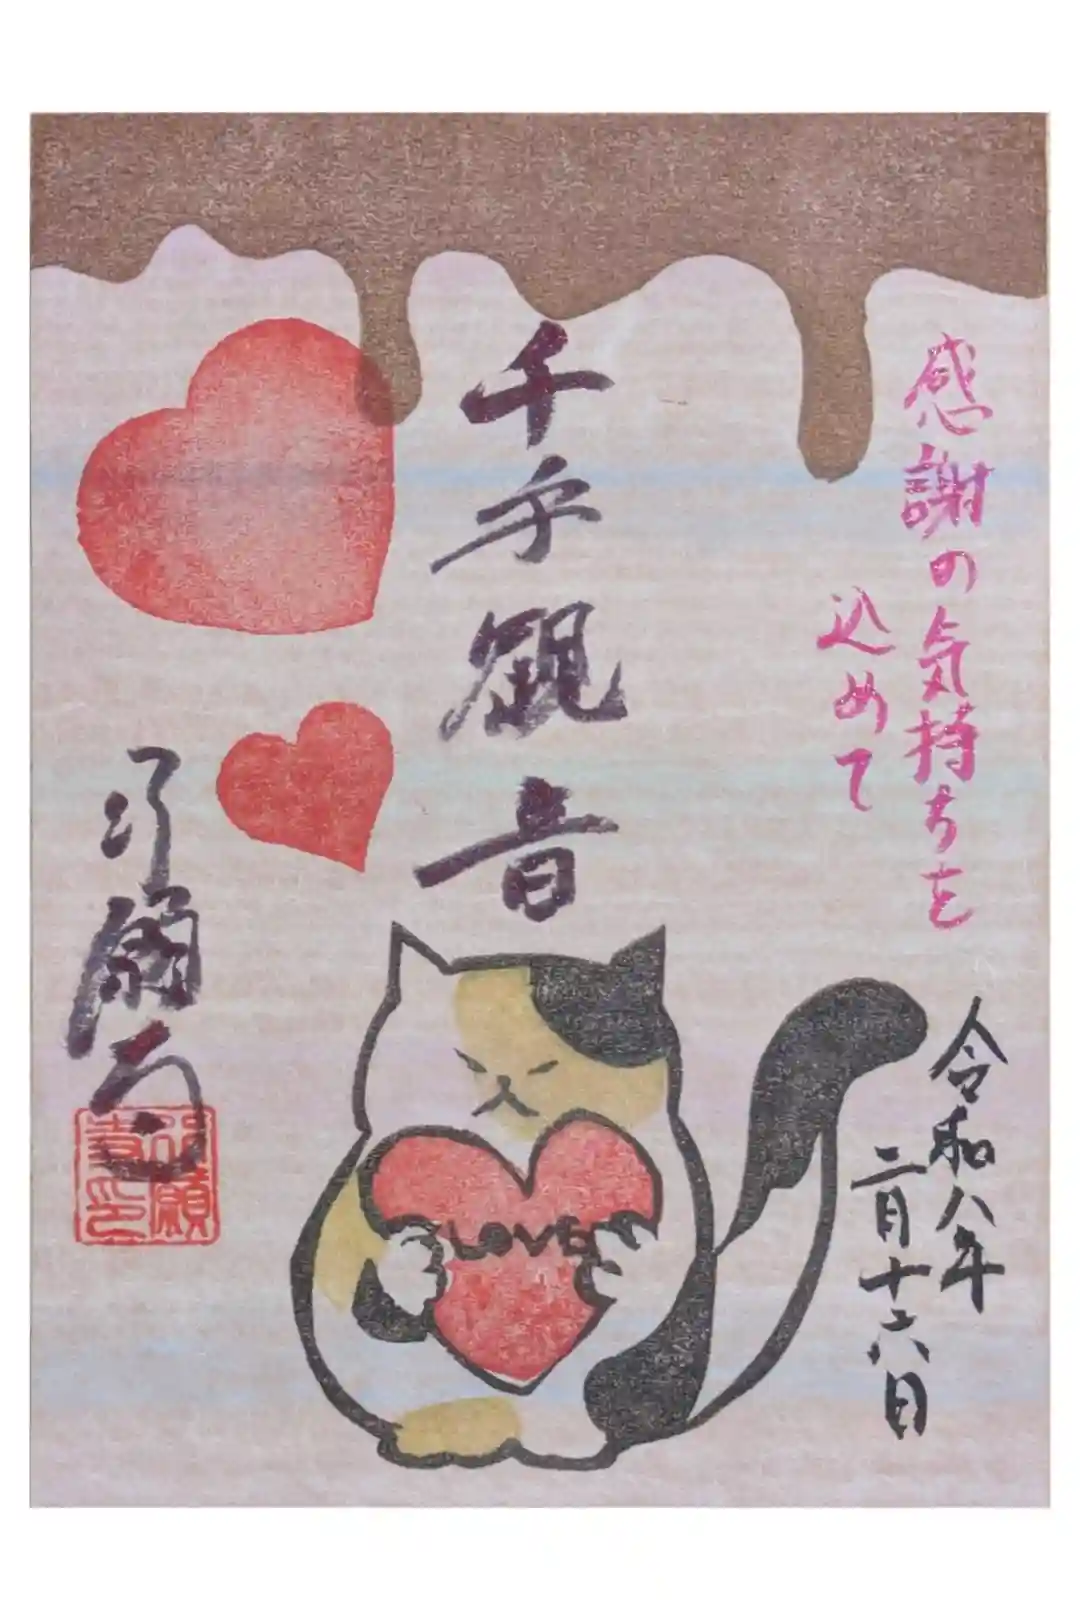 感謝の気持ちを
込めて
千手観音
行願寺
LOVE
令和八年
二月十六日